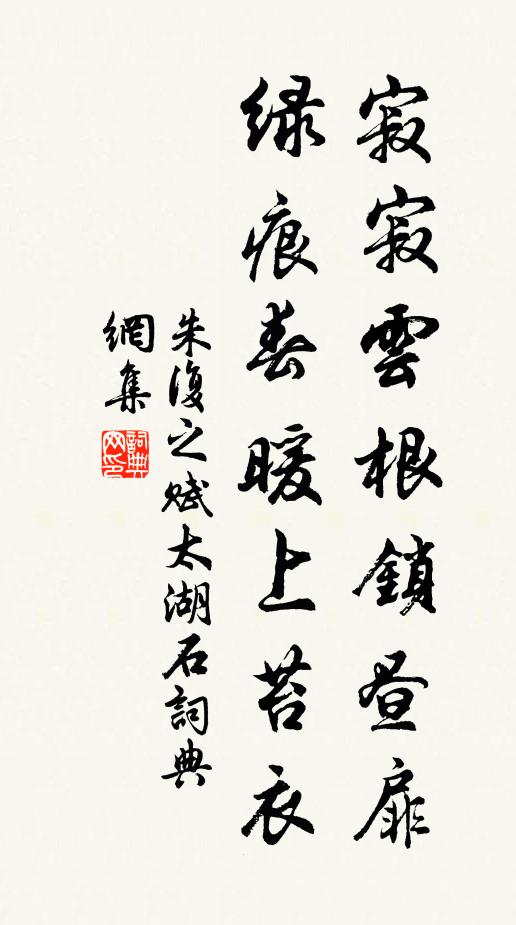 寂寂雲根鎖昼扉
綠痕春暖上苔衣
朱復之賦太湖石詞典
網集
詞典网印